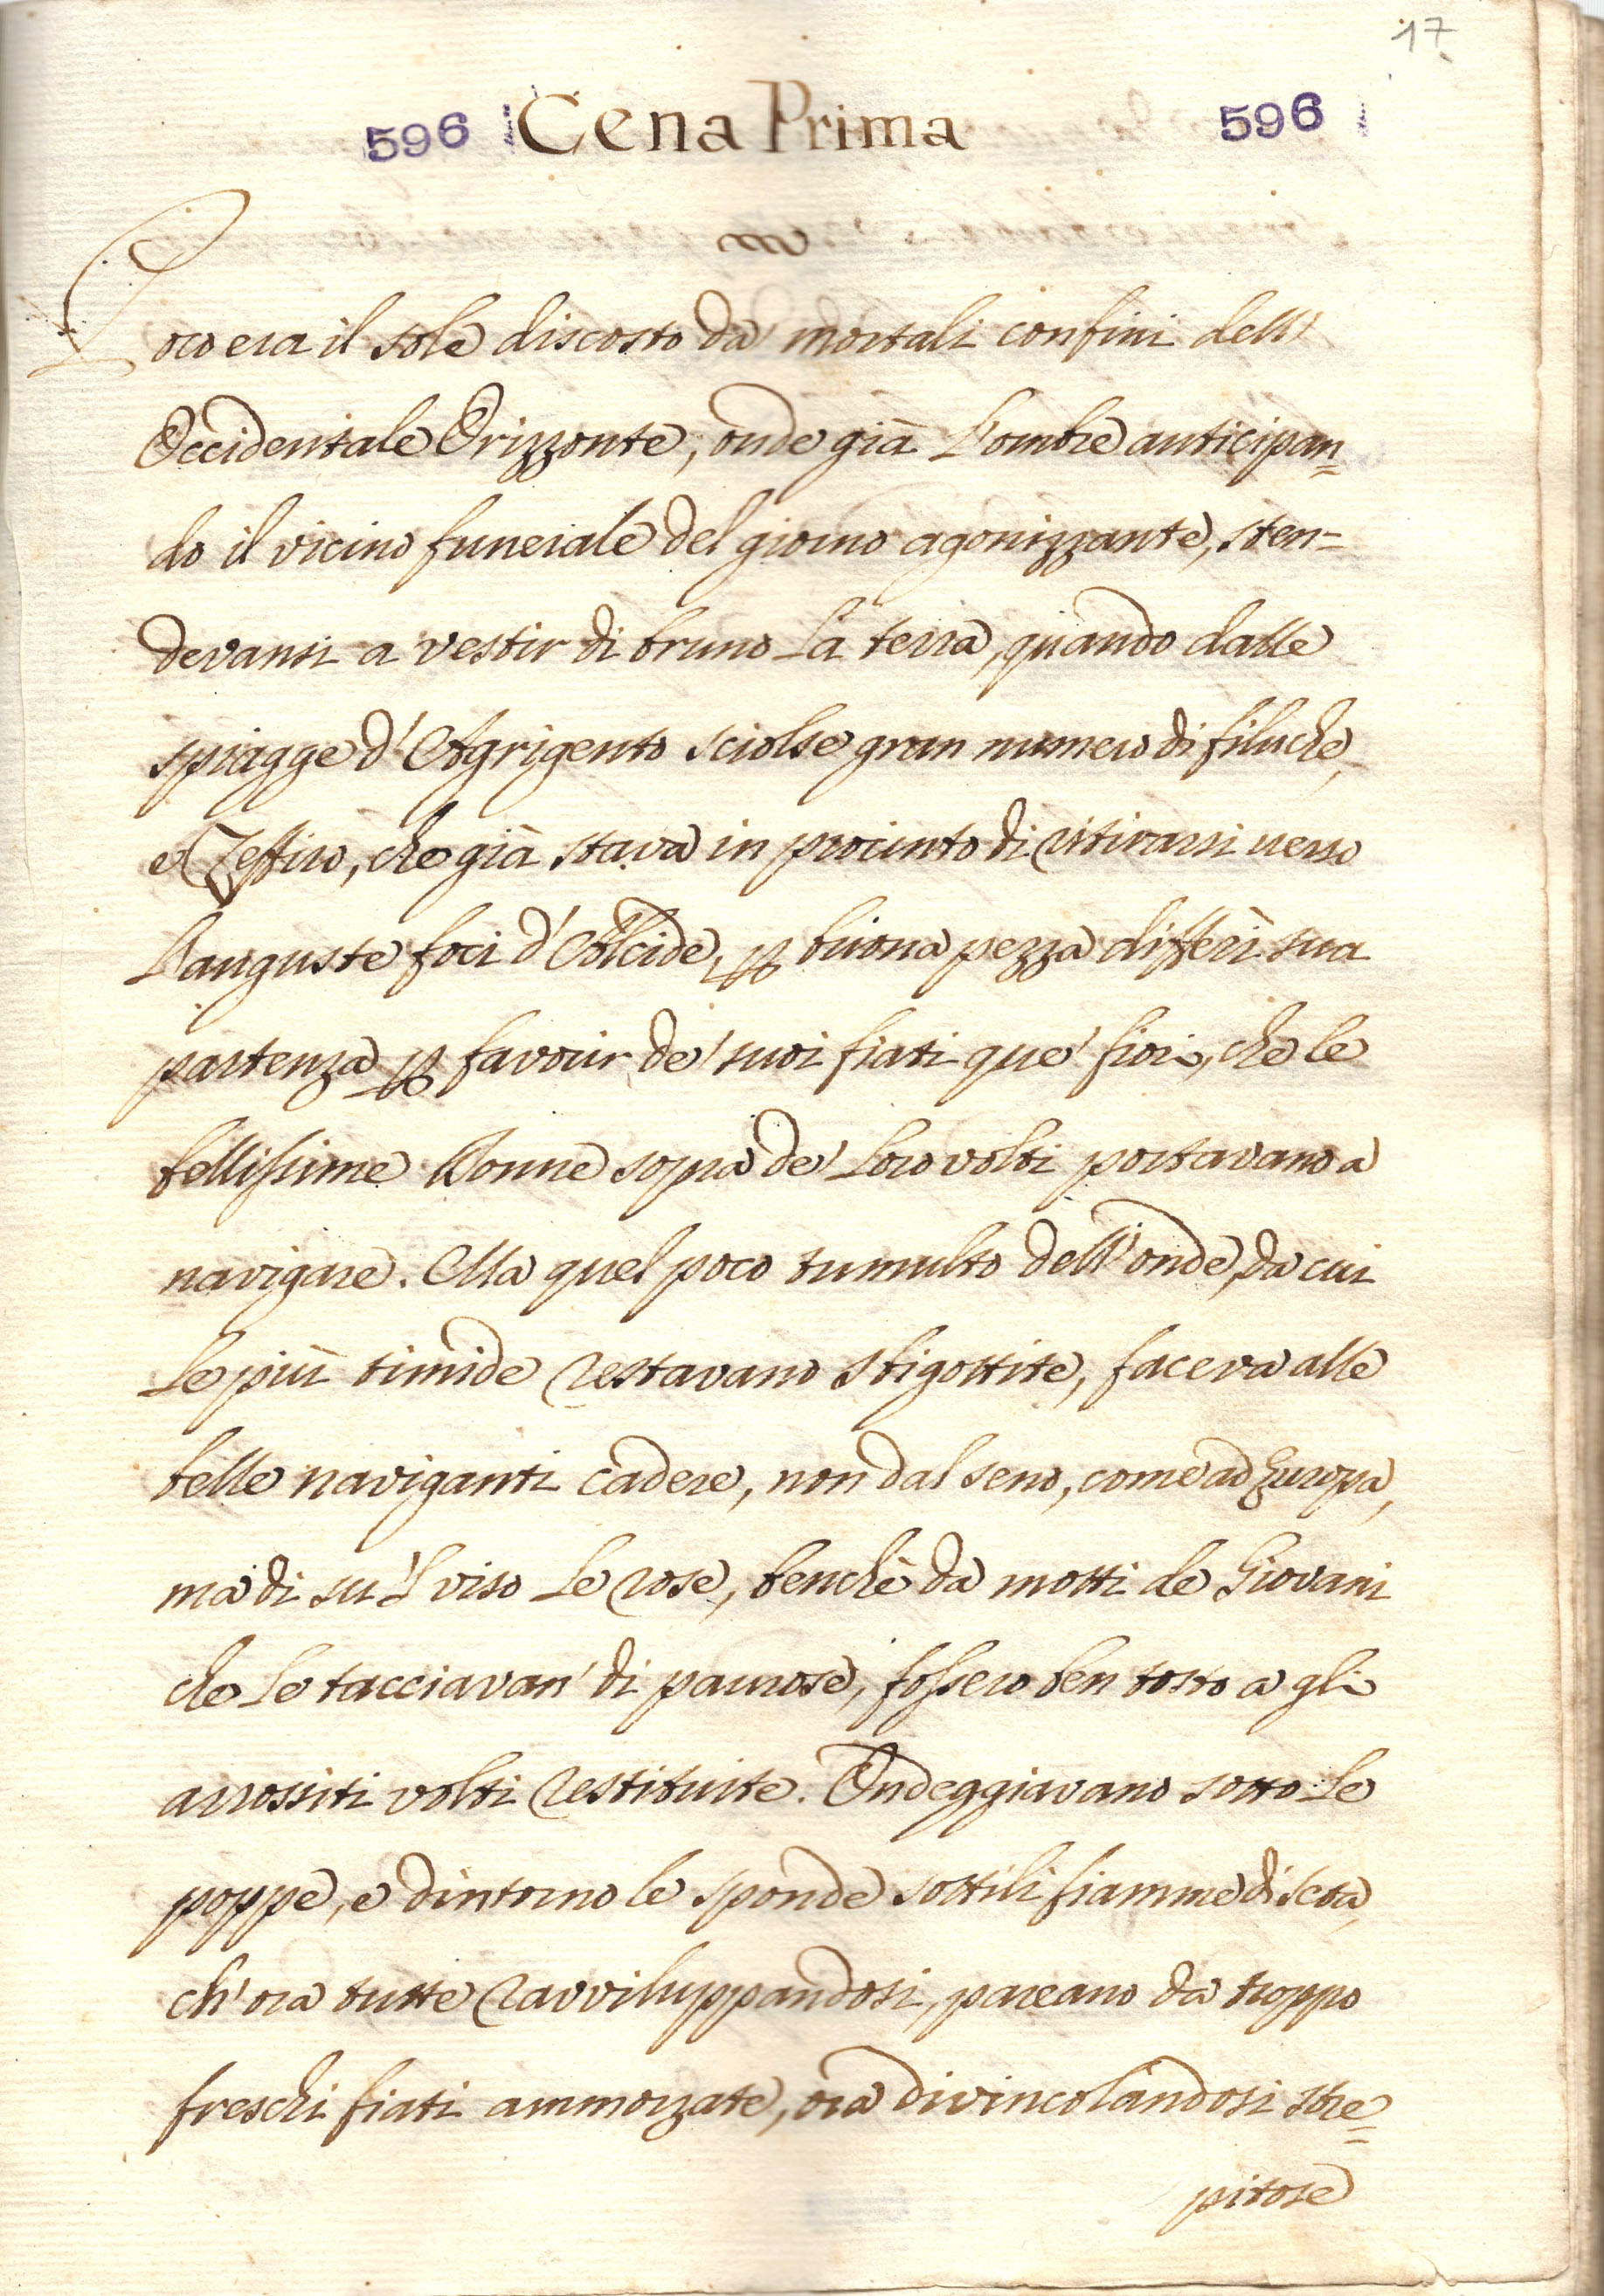 17
596 Cena Prima 596
Poco era il sole discosto da' mortali confini dell'
Occidentale Orizzonte, onde già l'ombre anticipan=
do il vicino funerale del giorno agonizzante, sten=
devansi a vestir di bruno la terra, quando dalle
spiagge d'Agrigento sciolse gran numero di filuche,
e Zeffiro, che già stava in procinto di ritirarsi verso
l'anguste foci d'Alcide, ꝑ buona pezza differì sua
partenza ꝑ favorir de' suoi fiati que' fiori, che le
bellissime Donne sopra de' loro volti portavano a
navigare. Ma quel poco tumulto dell'onde, da cui
le più timide restavano sbigottite, faceva alle
belle naviganti cadere, non dal seno, come ad Europa,
ma di su'l viso le rose, benchè da motti de Giovani
che le tacciavan' di paurose, fossero ben tosto a gli
arrossiti volti restituite. Ondeggiavano sotto le
poppe, e dintorno le sponde sottili fiamme di seta,
ch'ora tutte ravviluppandosi, pareano da troppo
freschi fiati ammorzate, ora divincolandosi stre=
pitose